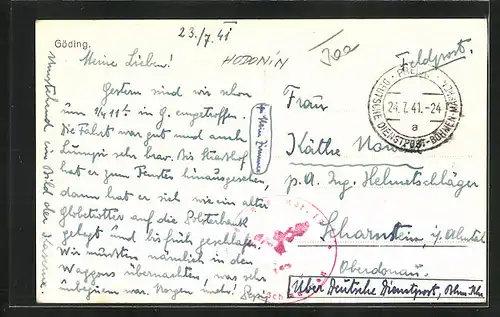 Göding.
23./7. 41
HODONÍN
Feldpost.
Meine Lieben!
Gestern sind wir schon
um 1/4 11h in G. eingetroffen.
Die Fahrt war gut und auch
Lumpi sehr brav. Bis
hat er zum Fenster hinausgesehen,
dann hat er sich wie ein alter
Globetrotter auf die Polsterbank
gelegt und bis früh geschlafen.
Wir mußten nämlich in den
Waggons übernachten, was sehr
unbequem war. Morgen mehr!
Umstehend ein Bild der Kaserne.
Mein Zimmer
Frau
Käthe
p. A. Ing. Helmetschläger
Scharnstein, i/ Almtal
Oberdonau.
Über Deutsche Dienstpost,
24.7.41.-24
a
DEUTSCHE DIENSTPOST BÖHMEN